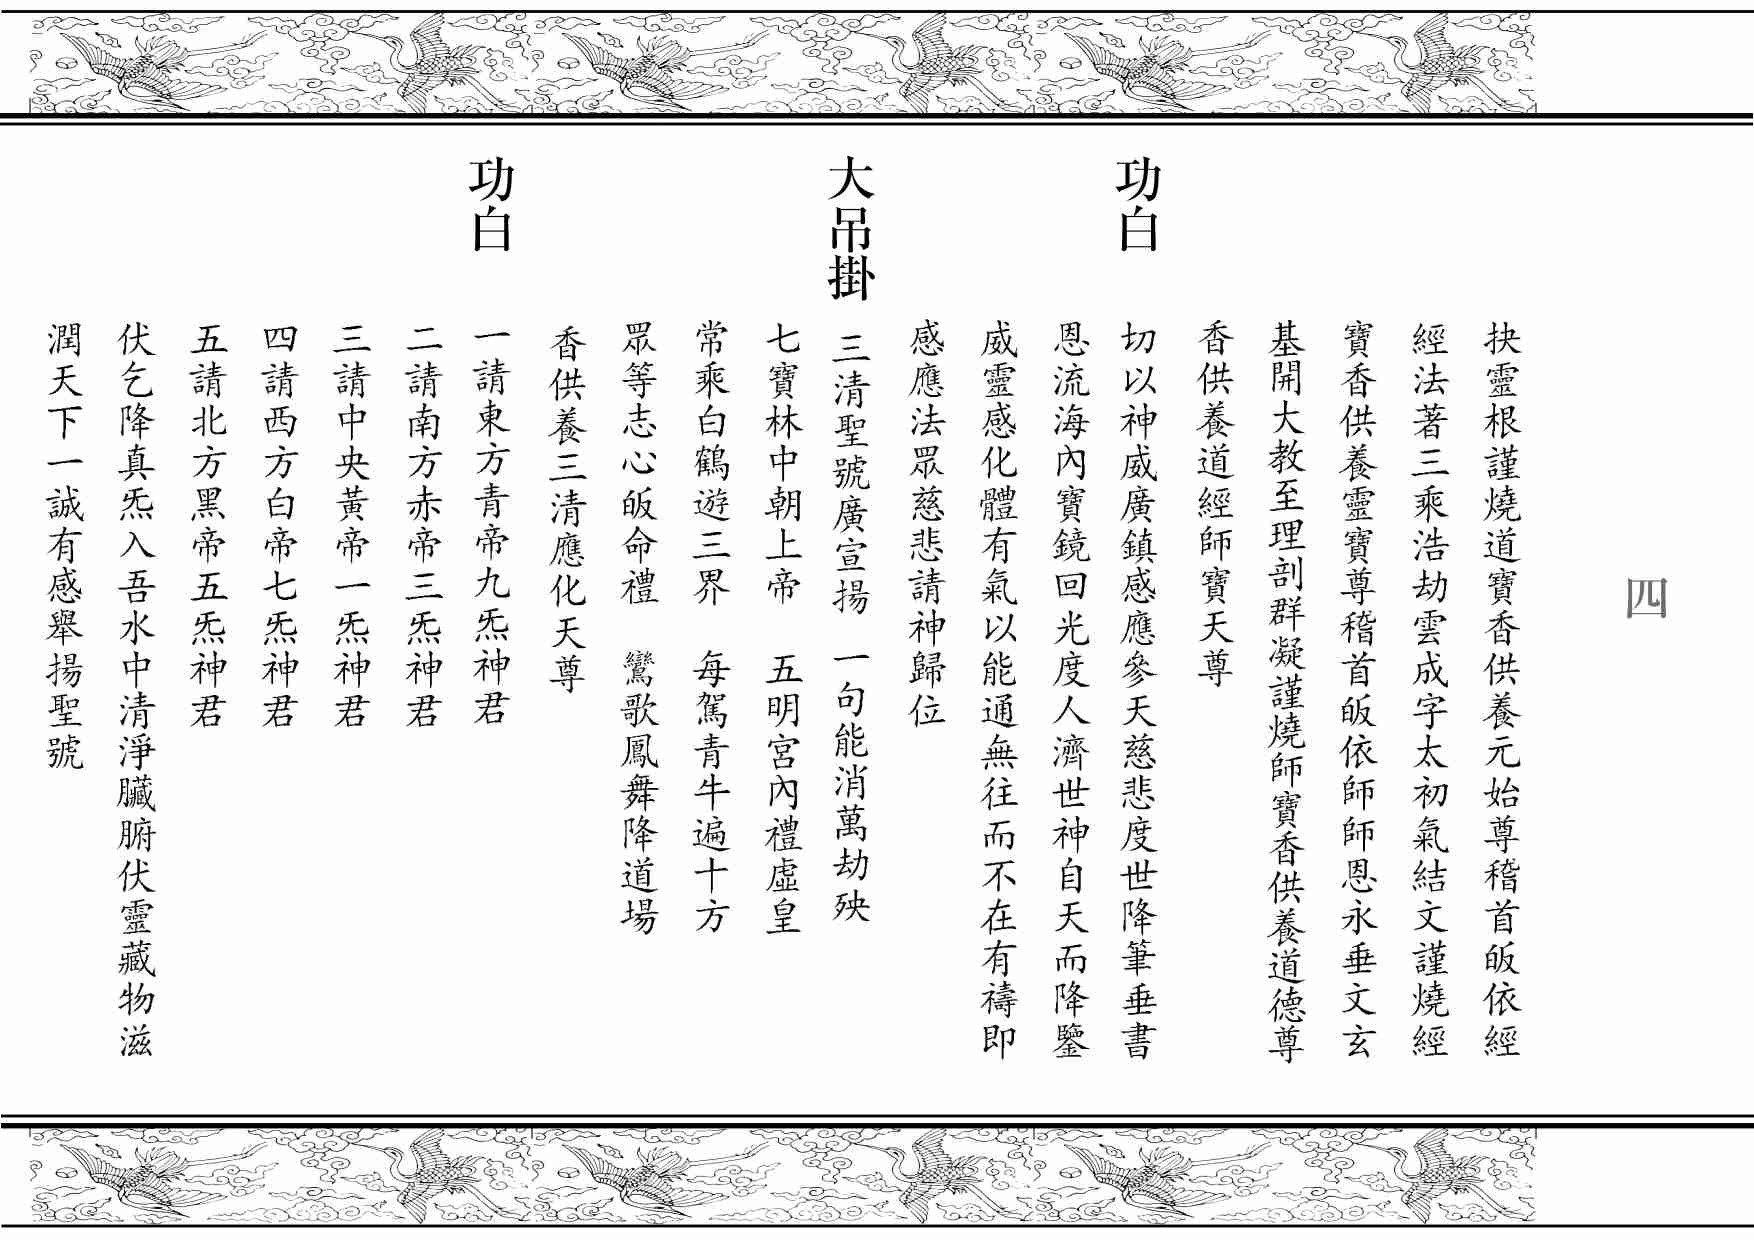 四
抉靈根謹燒道寶香供養元始尊稽首皈依經
經法著三乘浩劫雲成字太初氣結文謹燒經
寶香供養靈寶尊稽首皈依師師恩永垂文玄
基開大教至理剖群凝謹燒師寶香供養道德尊
香供養道經師寶天尊
功白
切以神威廣鎮感應參天慈悲度世降筆垂書
恩流海內寶鏡回光度人濟世神自天而降鑒
威靈感化體有氣以能通無往而不在有禱即
感應法眾慈悲請神歸位
大吊掛
三清聖號廣宣揚　一句能消萬劫殃
七寶林中朝上帝　五明宮內禮虛皇
常乘白鶴遊三界　每駕青牛遍十方
眾等志心皈命禮　鸞歌鳳舞降道場
香供養三清應化天尊
功白
一請東方青帝九炁神君
二請南方赤帝三炁神君
三請中央黃帝一炁神君
四請西方白帝七炁神君
五請北方黑帝五炁神君
伏乞降真炁入吾水中清淨臟腑伏靈藏物滋
潤天下一誠有感舉揚聖號